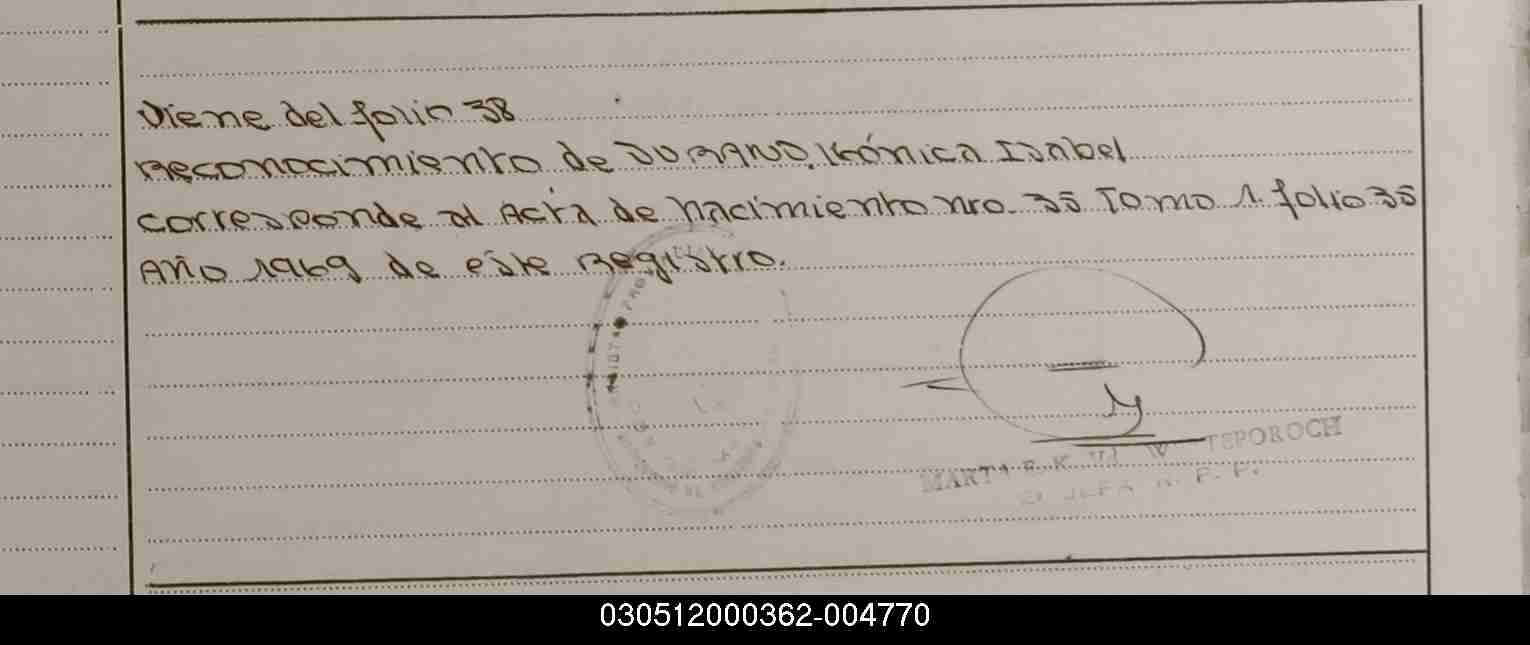 Viene del folio 38
Reconocimiento de DURAND, Mónica Isabel
corresponde al Acta de Nacimiento nro. 35 Tomo 1. folio 35
Año 1969 de este Registro.
TEPOROCH
030512000362-004770